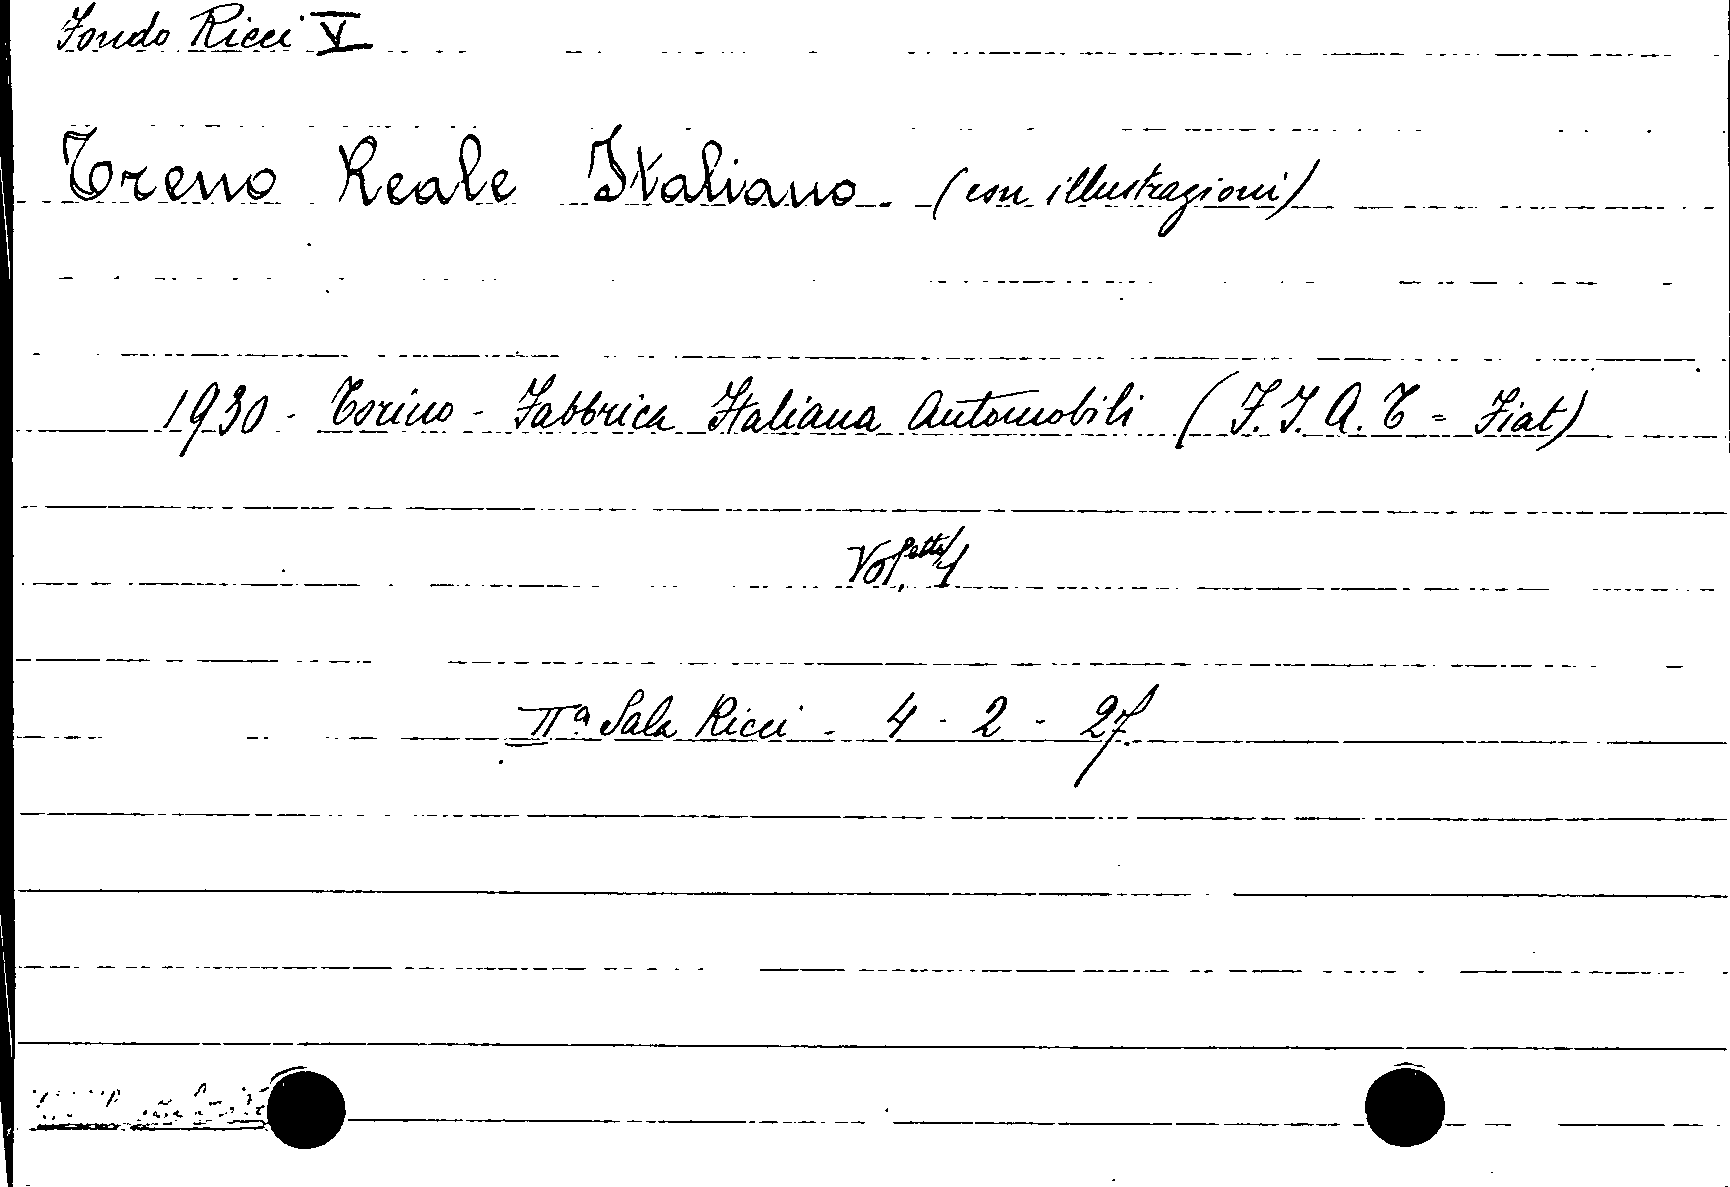 Fondo Ricci V
Treno Reale Italiano. (con illustrazioni)
1930 - Torino - Fabbrica Italiana Automobili (F.I.A.T = Fiat)
Vol.etto 1
IIª Sala Ricci - 4 - 2 - 27.